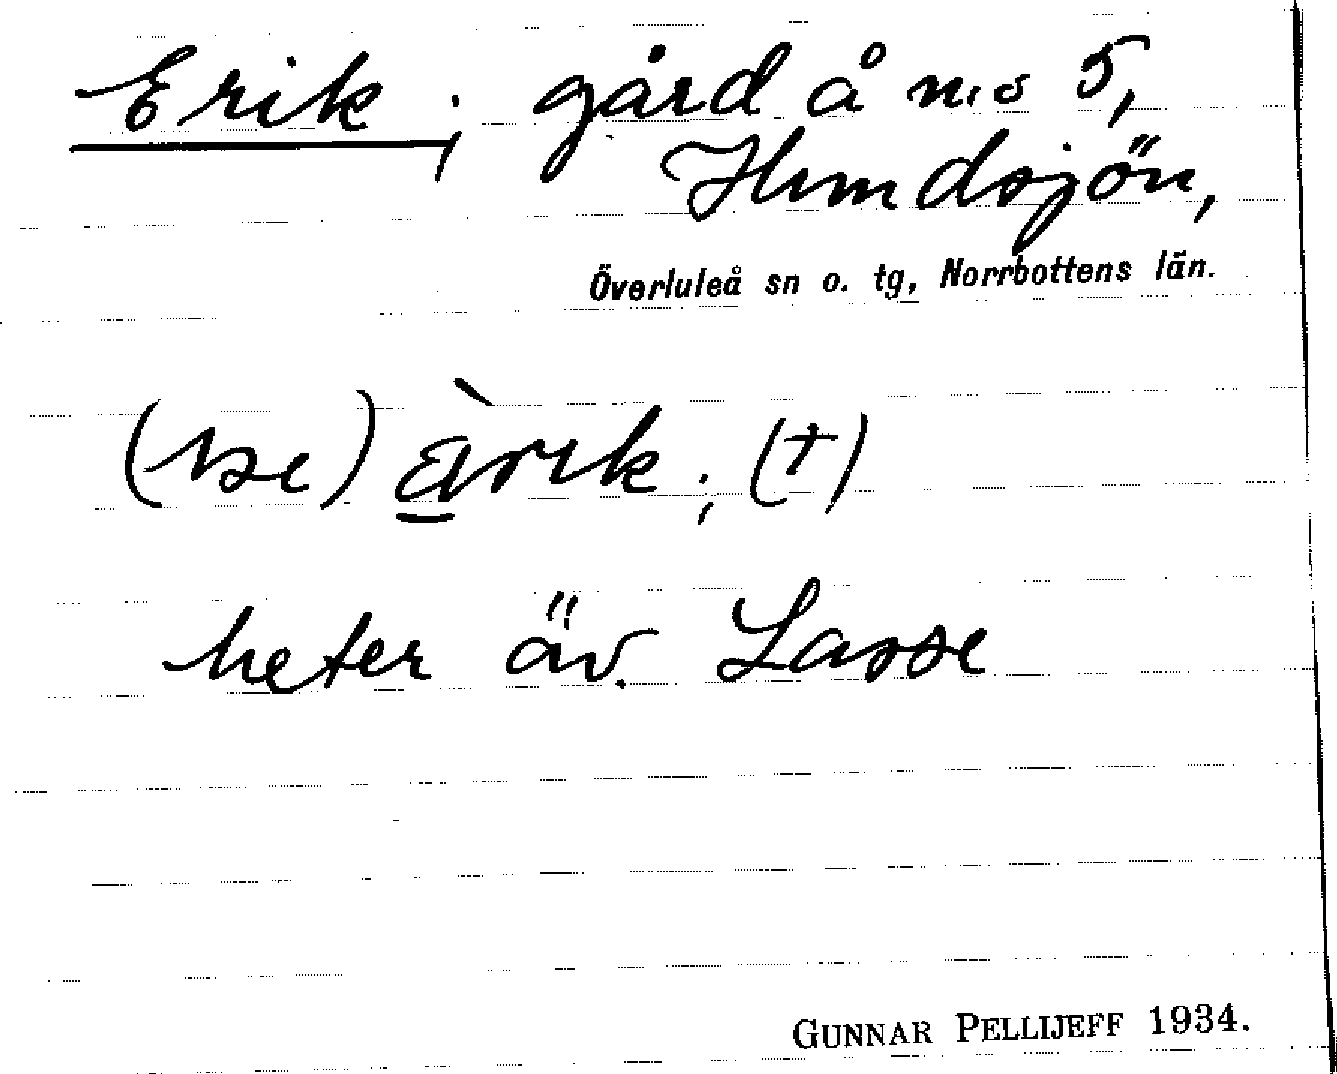 Erik; gård å n:o 5,
Hundsjön,
Överluleå sn o. tg, Norrbottens län.
heter äv. Lasse
GUNNAR PELLIJEFF 1934.